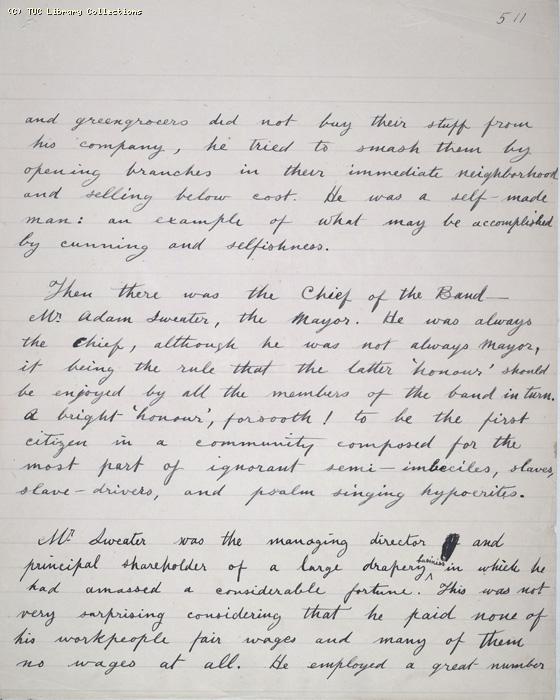 (C) TUC Library Collections
511
and greengrocers did not buy their stuff from
his company, he tried to smash them by
opening branches in their immediate neighborhood
and selling below cost. He was a self-made
man: an example of what may be accomplished
by cunning and selfishness.
Then there was the Chief of the Band—
Mr Adam Sweater, the Mayor. He was always
the Chief, although he was not always Mayor,
it being the rule that the latter 'honour' should
be enjoyed by all the members of the band in turn.
A bright 'honour', forsooth! to be the first
citizen in a community composed for the
most part of ignorant semi-imbeciles, slaves,
slave-drivers, and psalm singing hypocrites.
Mr Sweater was the managing director and
principal shareholder of a large drapery business in which he
had amassed a considerable fortune. This was not
very surprising considering that he paid none of
his workpeople fair wages and many of them
no wages at all. He employed a great number